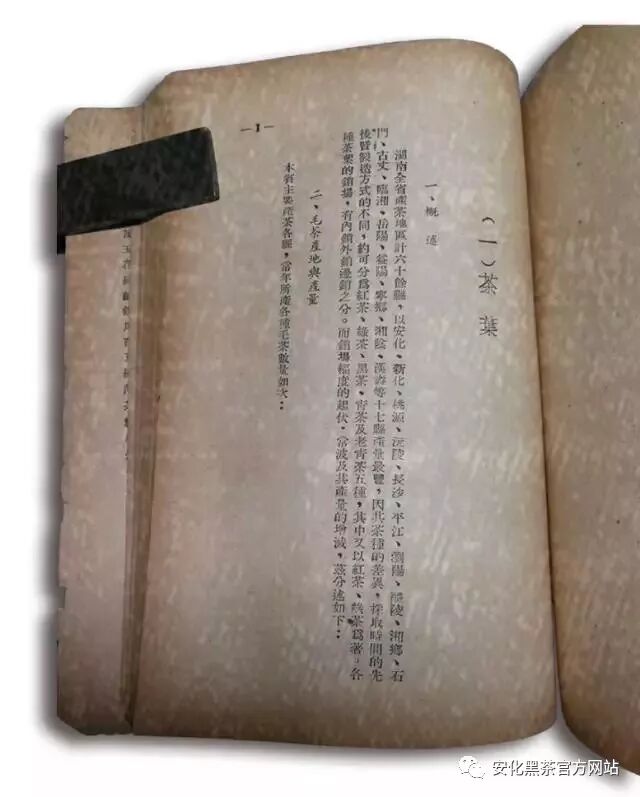 (一)茶葉
一、概述
湖南全省產茶地區計六十餘縣，以安化、新化、桃源、沅陵、長沙、平江、瀏陽、醴陵、湘鄉、石
門、古丈、臨湘、岳陽、益陽、寧鄉、湘陰、漢壽等十七縣產量最豐，因其茶種的差異，採取時間的先
後暨製造方式的不同，約可分爲紅茶、綠茶、黑茶、青茶及老青茶五種，其中又以紅茶、綠茶爲著。各
種茶葉的銷場，有內銷外銷邊銷之分。而銷場幅度的起伏，常波及其產量的增減，茲分述如下：
二、毛茶產地與產量
本省主要產茶各縣，常年所產各種毛茶數量如次：
—1—
安化黑茶官方网站